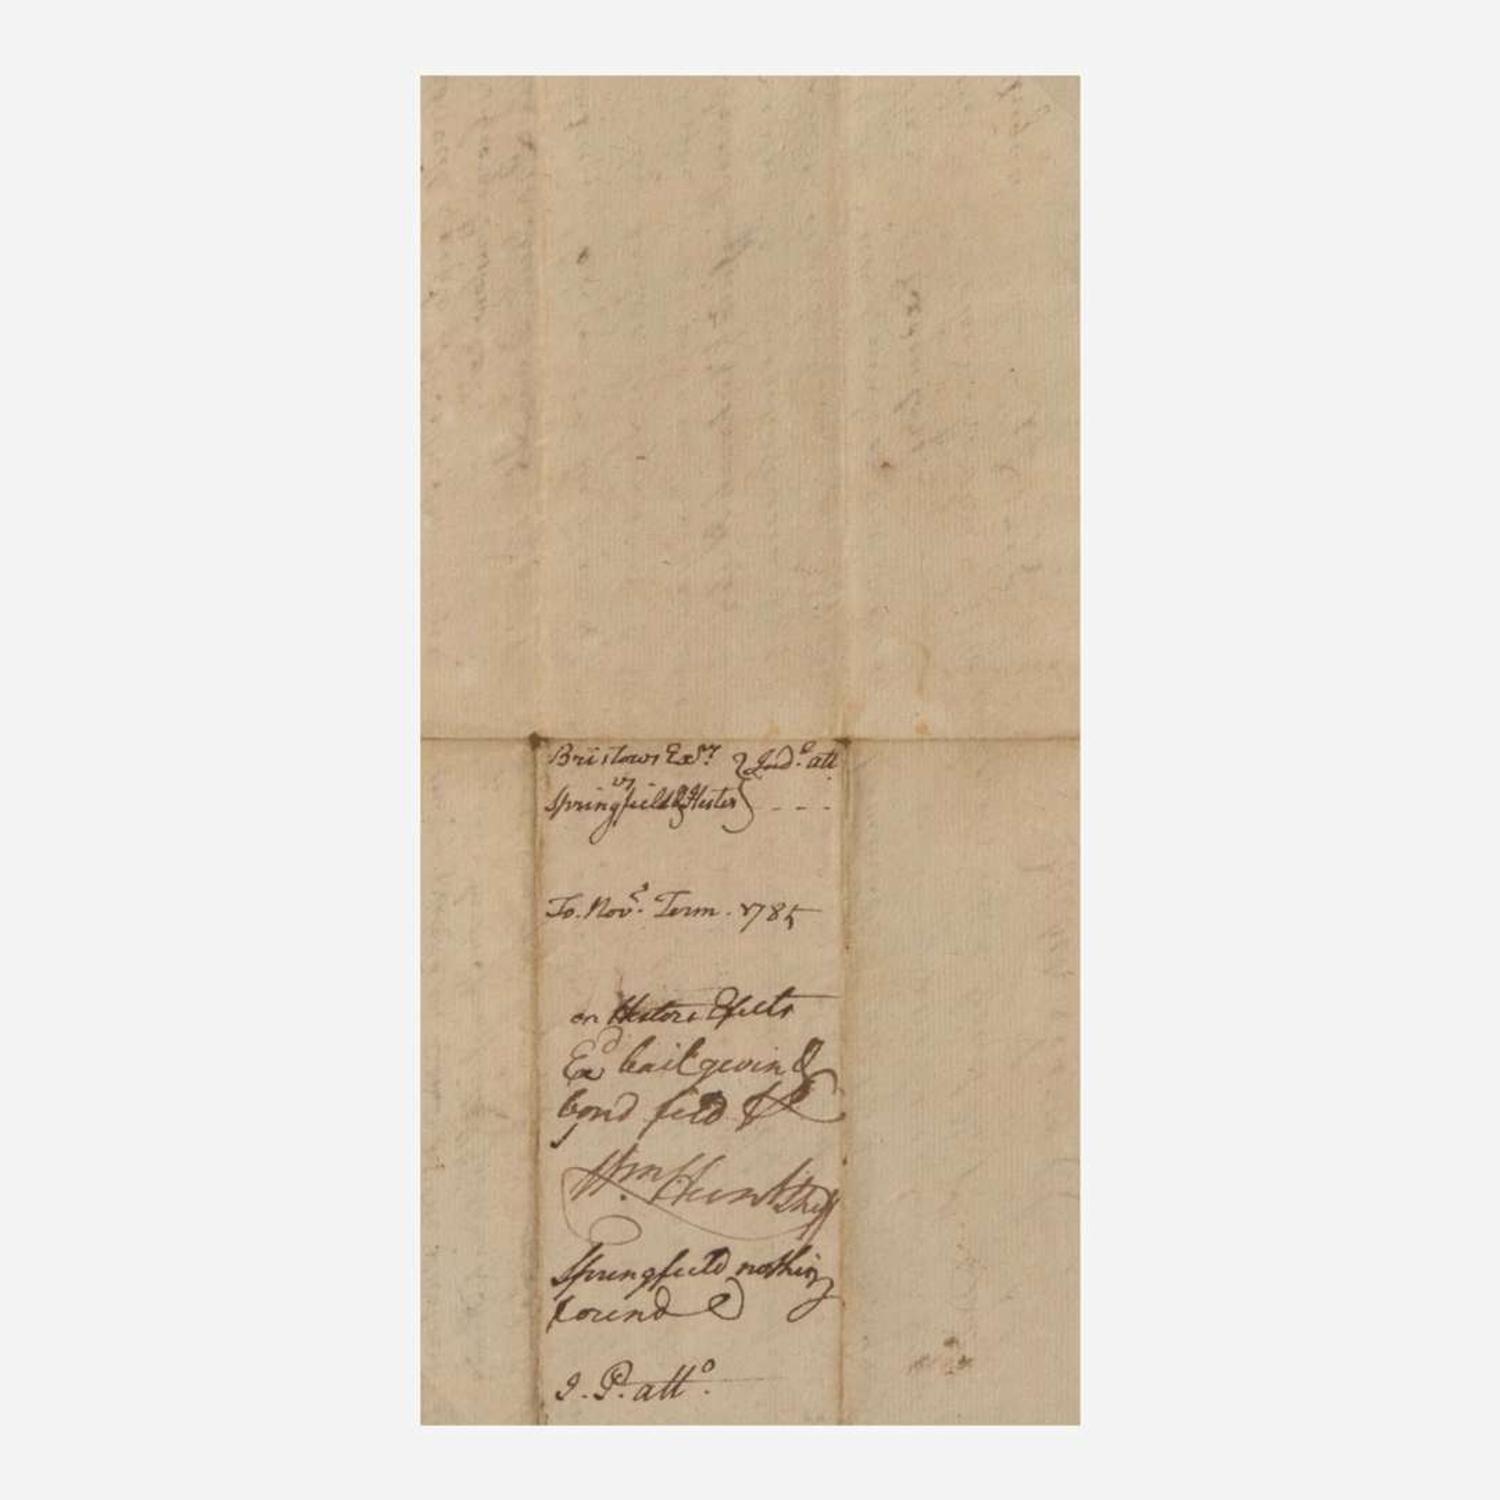 Bristows Exrs } Jud. att
vs
Springfield & Hester } - - -
To. Novr. Term. 1785
on Hestors Efects
Exd bail gevin &
bond feld &c
Wm. Hunt Shff
Springfield nothing
found
J. P. atto.